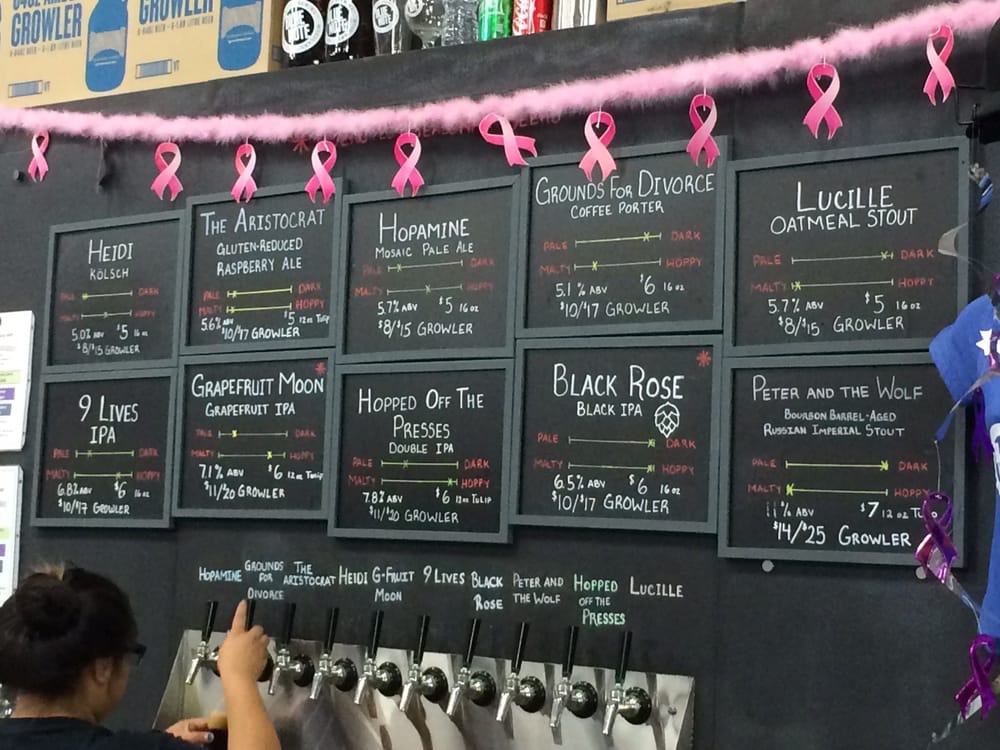 64OZ AMBER
GROWLER
GROWLER
COKE
HEIDI
KÖLSCH
PALE DARK
MALTY HOPPY
5.0% ABV $5 16 oz
$8/$15 GROWLER
THE ARISTOCRAT
GLUTEN-REDUCED
RASPBERRY ALE
PALE DARK
MALTY HOPPY
5.6% ABV $5 12 oz TULIP
$10/$17 GROWLER
HOPAMINE
MOSAIC PALE ALE
PALE DARK
MALTY HOPPY
5.7% ABV $5 16 oz
$8/$15 GROWLER
GROUNDS FOR DIVORCE
COFFEE PORTER
PALE DARK
MALTY HOPPY
5.1% ABV $6 16 oz
$10/$17 GROWLER
LUCILLE
OATMEAL STOUT
PALE DARK
MALTY HOPPY
5.7% ABV $5 16 oz
$8/$15 GROWLER
9 LIVES
IPA
PALE DARK
MALTY HOPPY
6.8% ABV $6 16 oz
$10/$17 GROWLER
GRAPEFRUIT MOON
GRAPEFRUIT IPA
PALE DARK
MALTY HOPPY
7.1% ABV $6 12 oz TULIP
$11/$20 GROWLER
HOPPED OFF THE
PRESSES
DOUBLE IPA
PALE DARK
MALTY HOPPY
7.8% ABV $6 12 oz TULIP
$11/$20 GROWLER
BLACK ROSE
BLACK IPA
PALE DARK
MALTY HOPPY
6.5% ABV $6 16 oz
$10/$17 GROWLER
PETER AND THE WOLF
BOURBON BARREL-AGED
RUSSIAN IMPERIAL STOUT
PALE DARK
MALTY HOPPY
11% ABV $7 12 oz
$14/$25 GROWLER
HOPAMINE
GROUNDS
FOR
DIVORCE
THE
ARISTOCRAT
HEIDI
G-FRUIT
MOON
9 LIVES
BLACK
ROSE
PETER AND
THE WOLF
HOPPED
OFF THE
PRESSES
LUCILLE